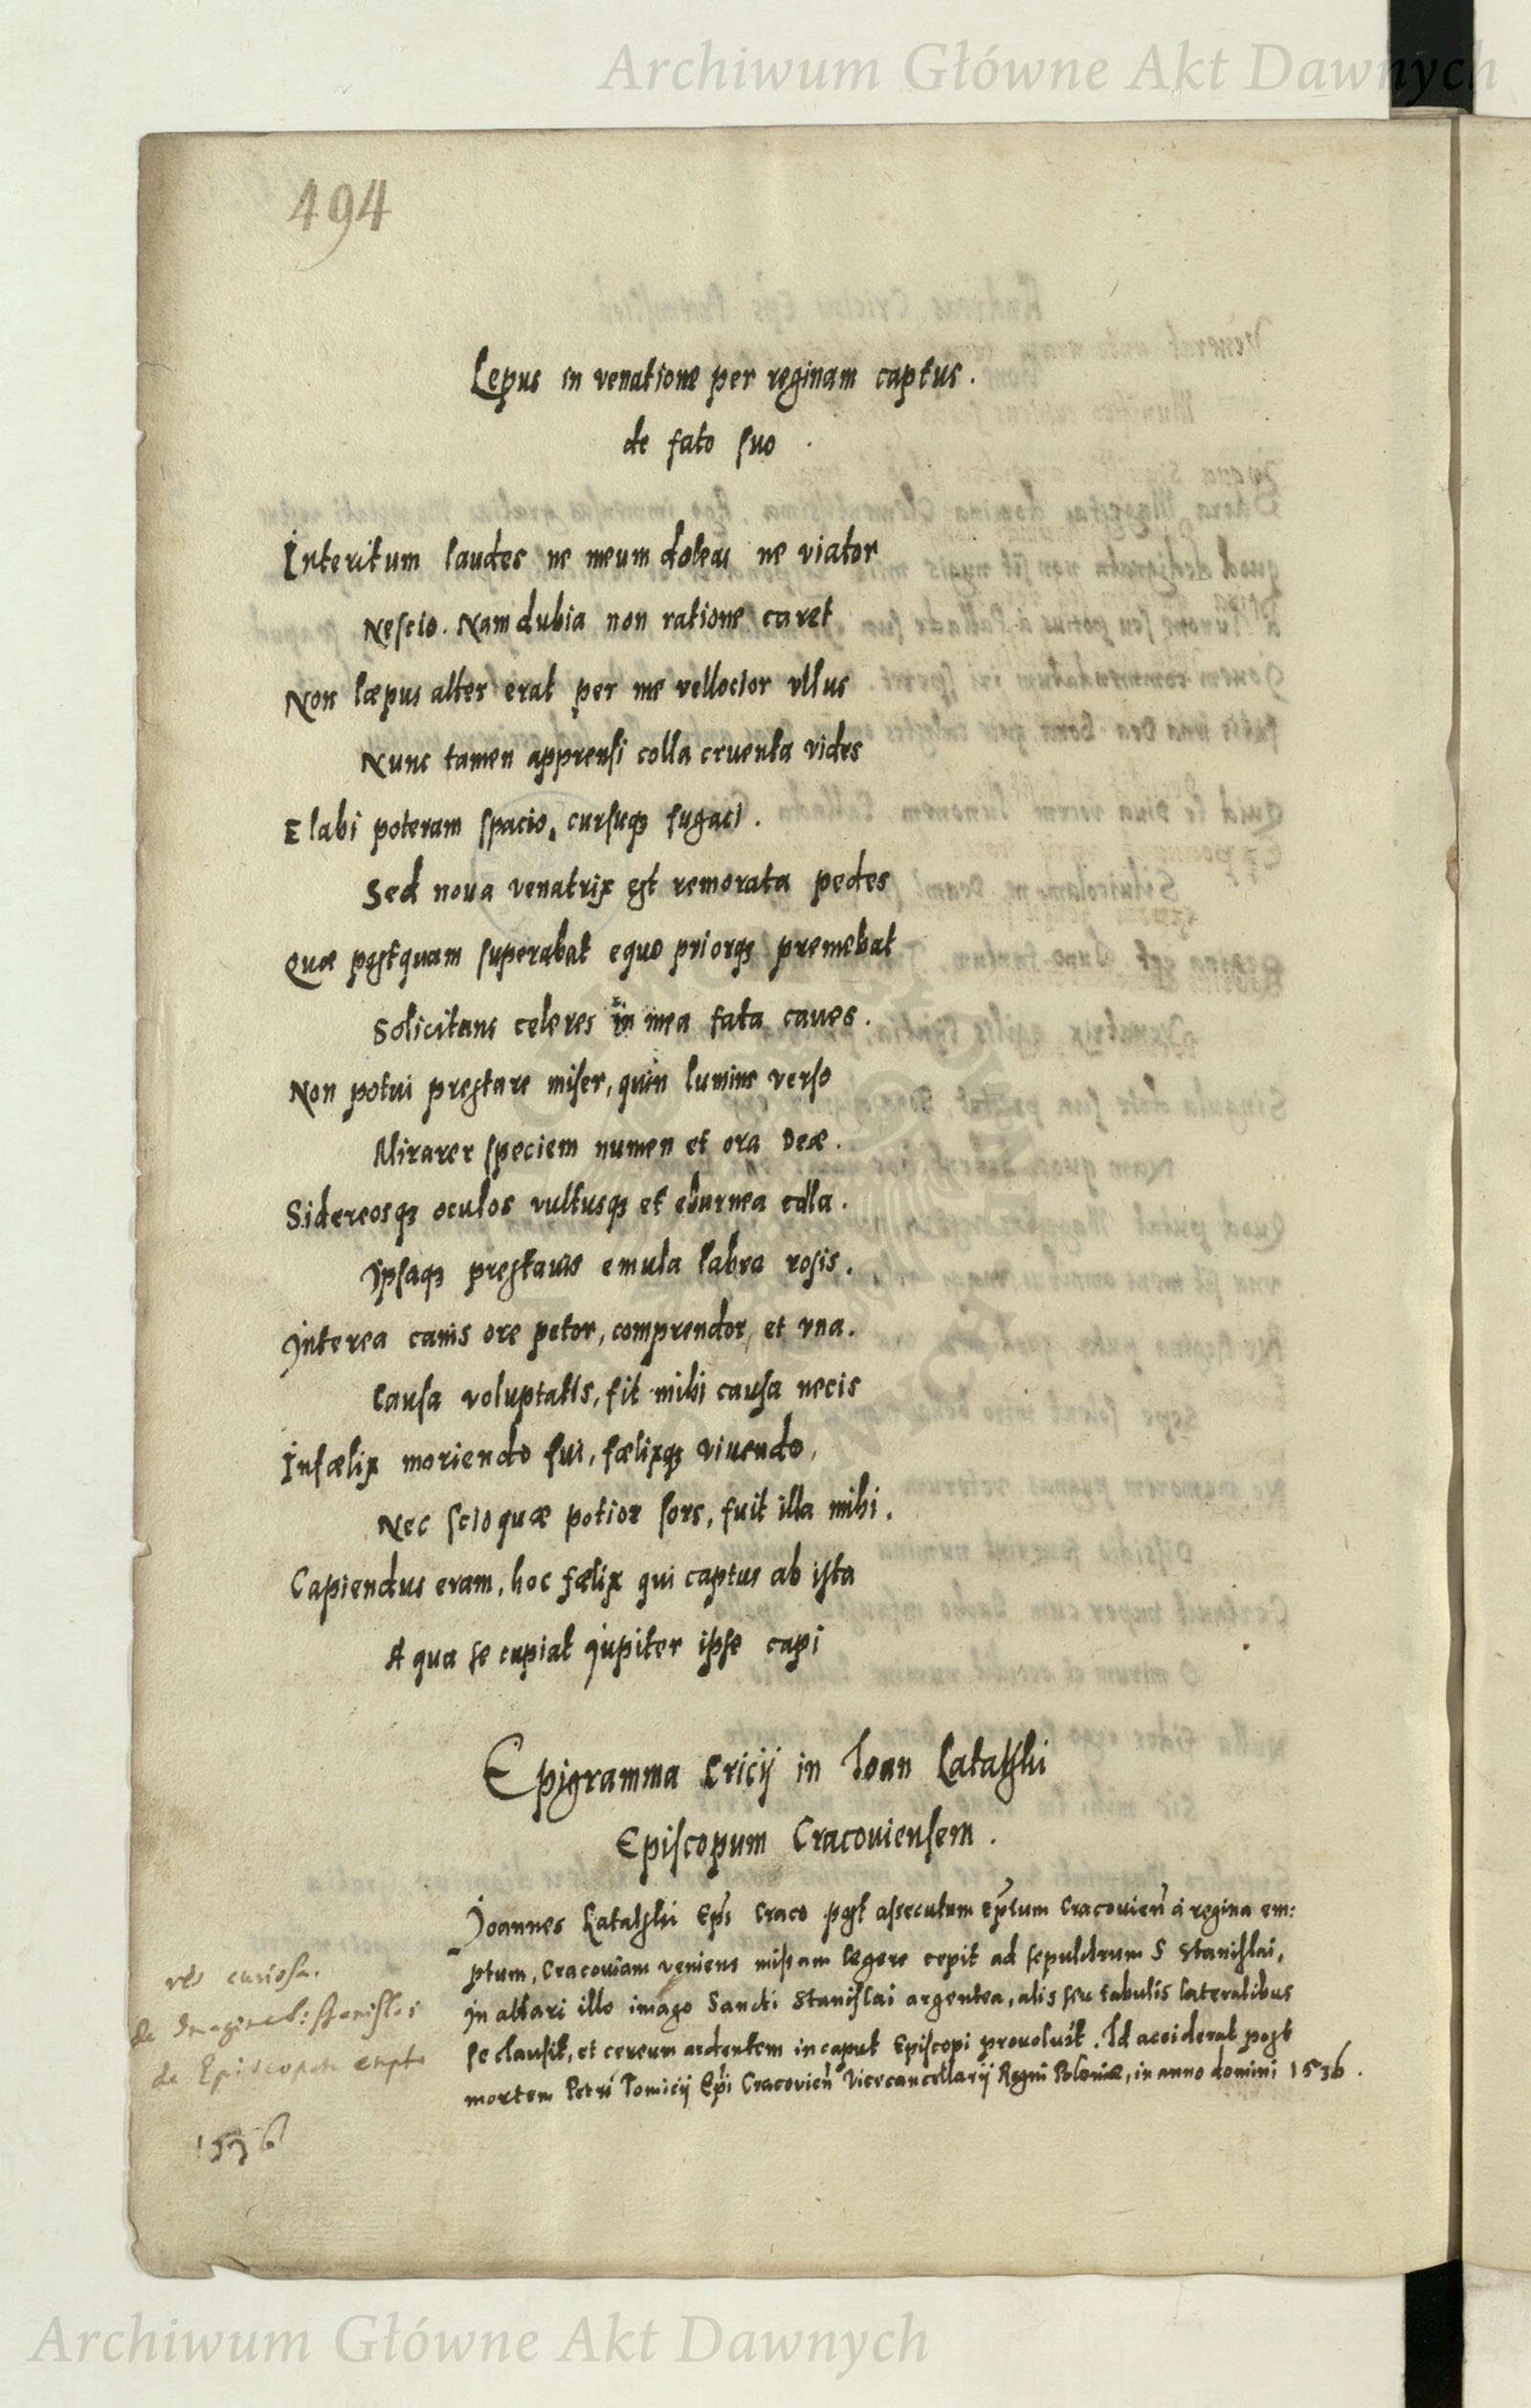 Archiwum Główne Akt Dawnych
494
Lepus in venatione per reginam captus.
de fato suo.
Interitum laudes ne meum doleas ne viator
Nescio. Nam dubia non ratione caret
Non læpus alter erat per me vellocior ullus
Nunc tamen apprensi colla cruenta vides
Elabi poteram spacio, cursuq3 fugaci.
Sed noua venatrix est remorata pedes
Quæ postquam superabat equo priorq3 premebat
Solicitans celeres in mea fata canes.
Non potui prestare miser, quin lumine verso
Mirarer speciem numen et ora Deæ.
Sidereosq3 oculos vultusq3 et eburnea colla.
Ipsaq3 prestanis emula labra rosis.
Interea canis ore petor, comprendor, et vna.
Causa voluptatis, fit mihi causa necis
Infælix moriendo fui, fælixq3 viuendo,
Nec scio quæ potior sors, fuit illa mihi.
Capiendus eram, hoc fælix qui captus ab ista
A qua se cupiat Jupiter ipse capi
Epigramma Cricij in Joan Latalski
Episcopum Cracouiensem.
Joannes Latalski Epis Craco post assecutum Eptum Cracouien̄ á regina em:
ptum, Cracouiam veniens missam legere cepit ad sepulchrum S Stanislai,
In altari illo imago Sancti Stanislai argentea, alis seu tabulis lateralibus
se clausit, et cereum ardentem in caput Episcopi prouoluit. Id acciderat post
mortem Petri Tomicij Epi Cracovien̄ Vicecancellarij Regni Poloniæ, in anno domini 1536.
res curiosa.
de Imagine S: Stanislai
de Episcopatu empto
1536
Archiwum Główne Akt Dawnych